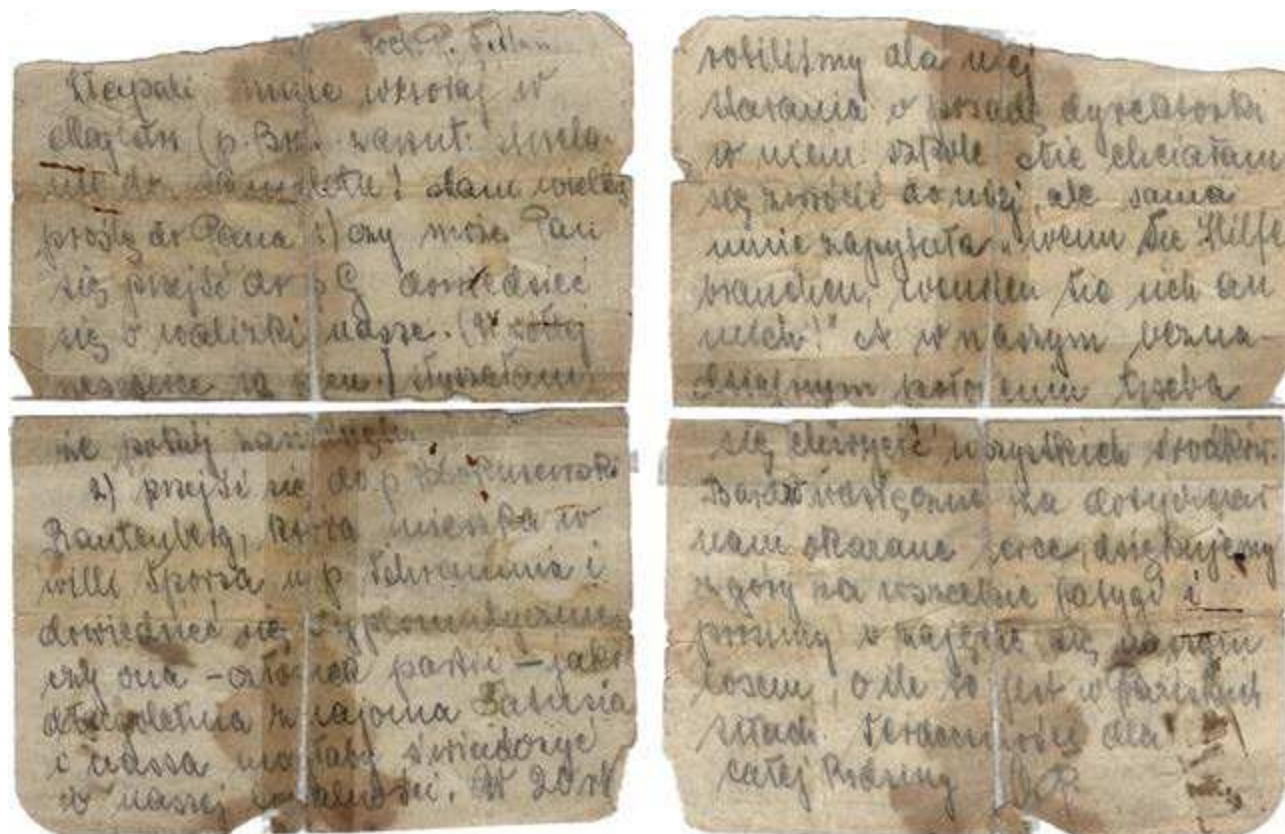 Koch. P.
mnie wczoraj w
(p. Br.
do Mam wielką
prośbę do Pana 1) czy może Pan
się przejść do p G dowiedzieć
się o walizki nasze. (W żółtej
są słyszałam
że pokój
2) przejść się do p
Rantenberg, która mieszka w
willi Sporza u p i
dowiedzieć się dyplomatycznie
czy ona – członek partii – jako
długoletnia znajoma Tatusia
i nasza mogłaby świadczyć
o naszej lojalności. W 20 r
robiliśmy dla niej
starania o posadę dyrektorki
w niem. szkole Nie chciałam
się zwrócić do niej, ale sama
mnie zapytała „wenn Sie Hilfe
brauchen, wenden Sie sich an
mich!" A w naszym bezna-
dziejnym położeniu trzeba
się chwycić wszystkich środków.
Bardzo wdzięczna za dotychczas
nam okazane serce, dziękujemy
z góry za wszelkie fatygi i
prosimy o zajęcie się naszym
losem, o ile to jest w Pańskich
siłach. Serdeczności dla
całej Rodziny